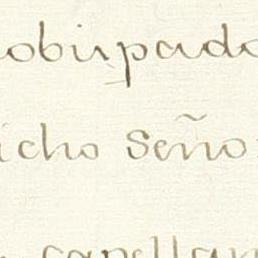 obispado
icho Señor
capellan